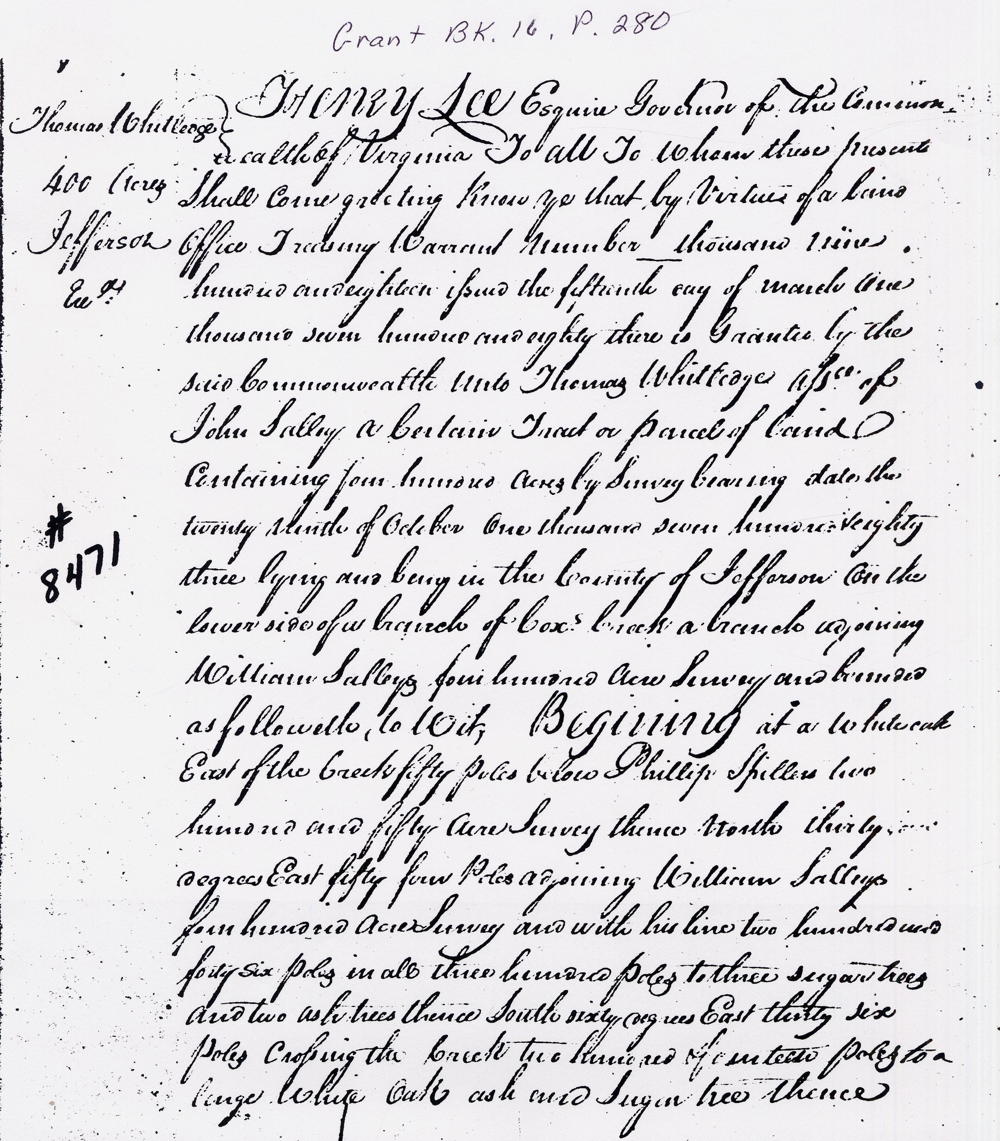 Grant BK. 16, P. 280
Thomas Whitledge
400 Acres
Jefferson
Exd.
#
8471
Henry Lee Esquire Governor of the Common-
wealth of Virginia To all To Whom these presents
Shall Come greeting Know ye that by Virtue of a Land
Office Treasury Warrant Number __ thousand Nine
hundred and eighteen issued the fifteenth day of march One
thousand seven hundred and eighty there is Granted by the
said Commonwealth Unto Thomas Whitledge Assee. of
John Salley A Certain Tract or parcel of Land
Containing four hundred Acres by Survey bearing date the
twenty Ninth of October One thousand seven hundred & eighty
three lying and being in the County of Jefferson On the
lower side of a branch of Coxs Creek a branch adjoining
William Salleys four hundred Acre Survey and bounded
as followeth, to Wit, Begining at a White oak
East of the Creek fifty Poles below Phillip Spillers two
hundred and fifty Acre Survey thence North thirty
degrees East fifty four Poles adjoining William Salleys
four hundred Acre Survey and with his line two hundred and
forty six poles in all three hundred poles to three sugar trees
and two ash trees thence South sixty degrees East thirty six
poles Crossing the Creek two hundred & fourteen poles to a
large White Oak ash and Sugar tree thence